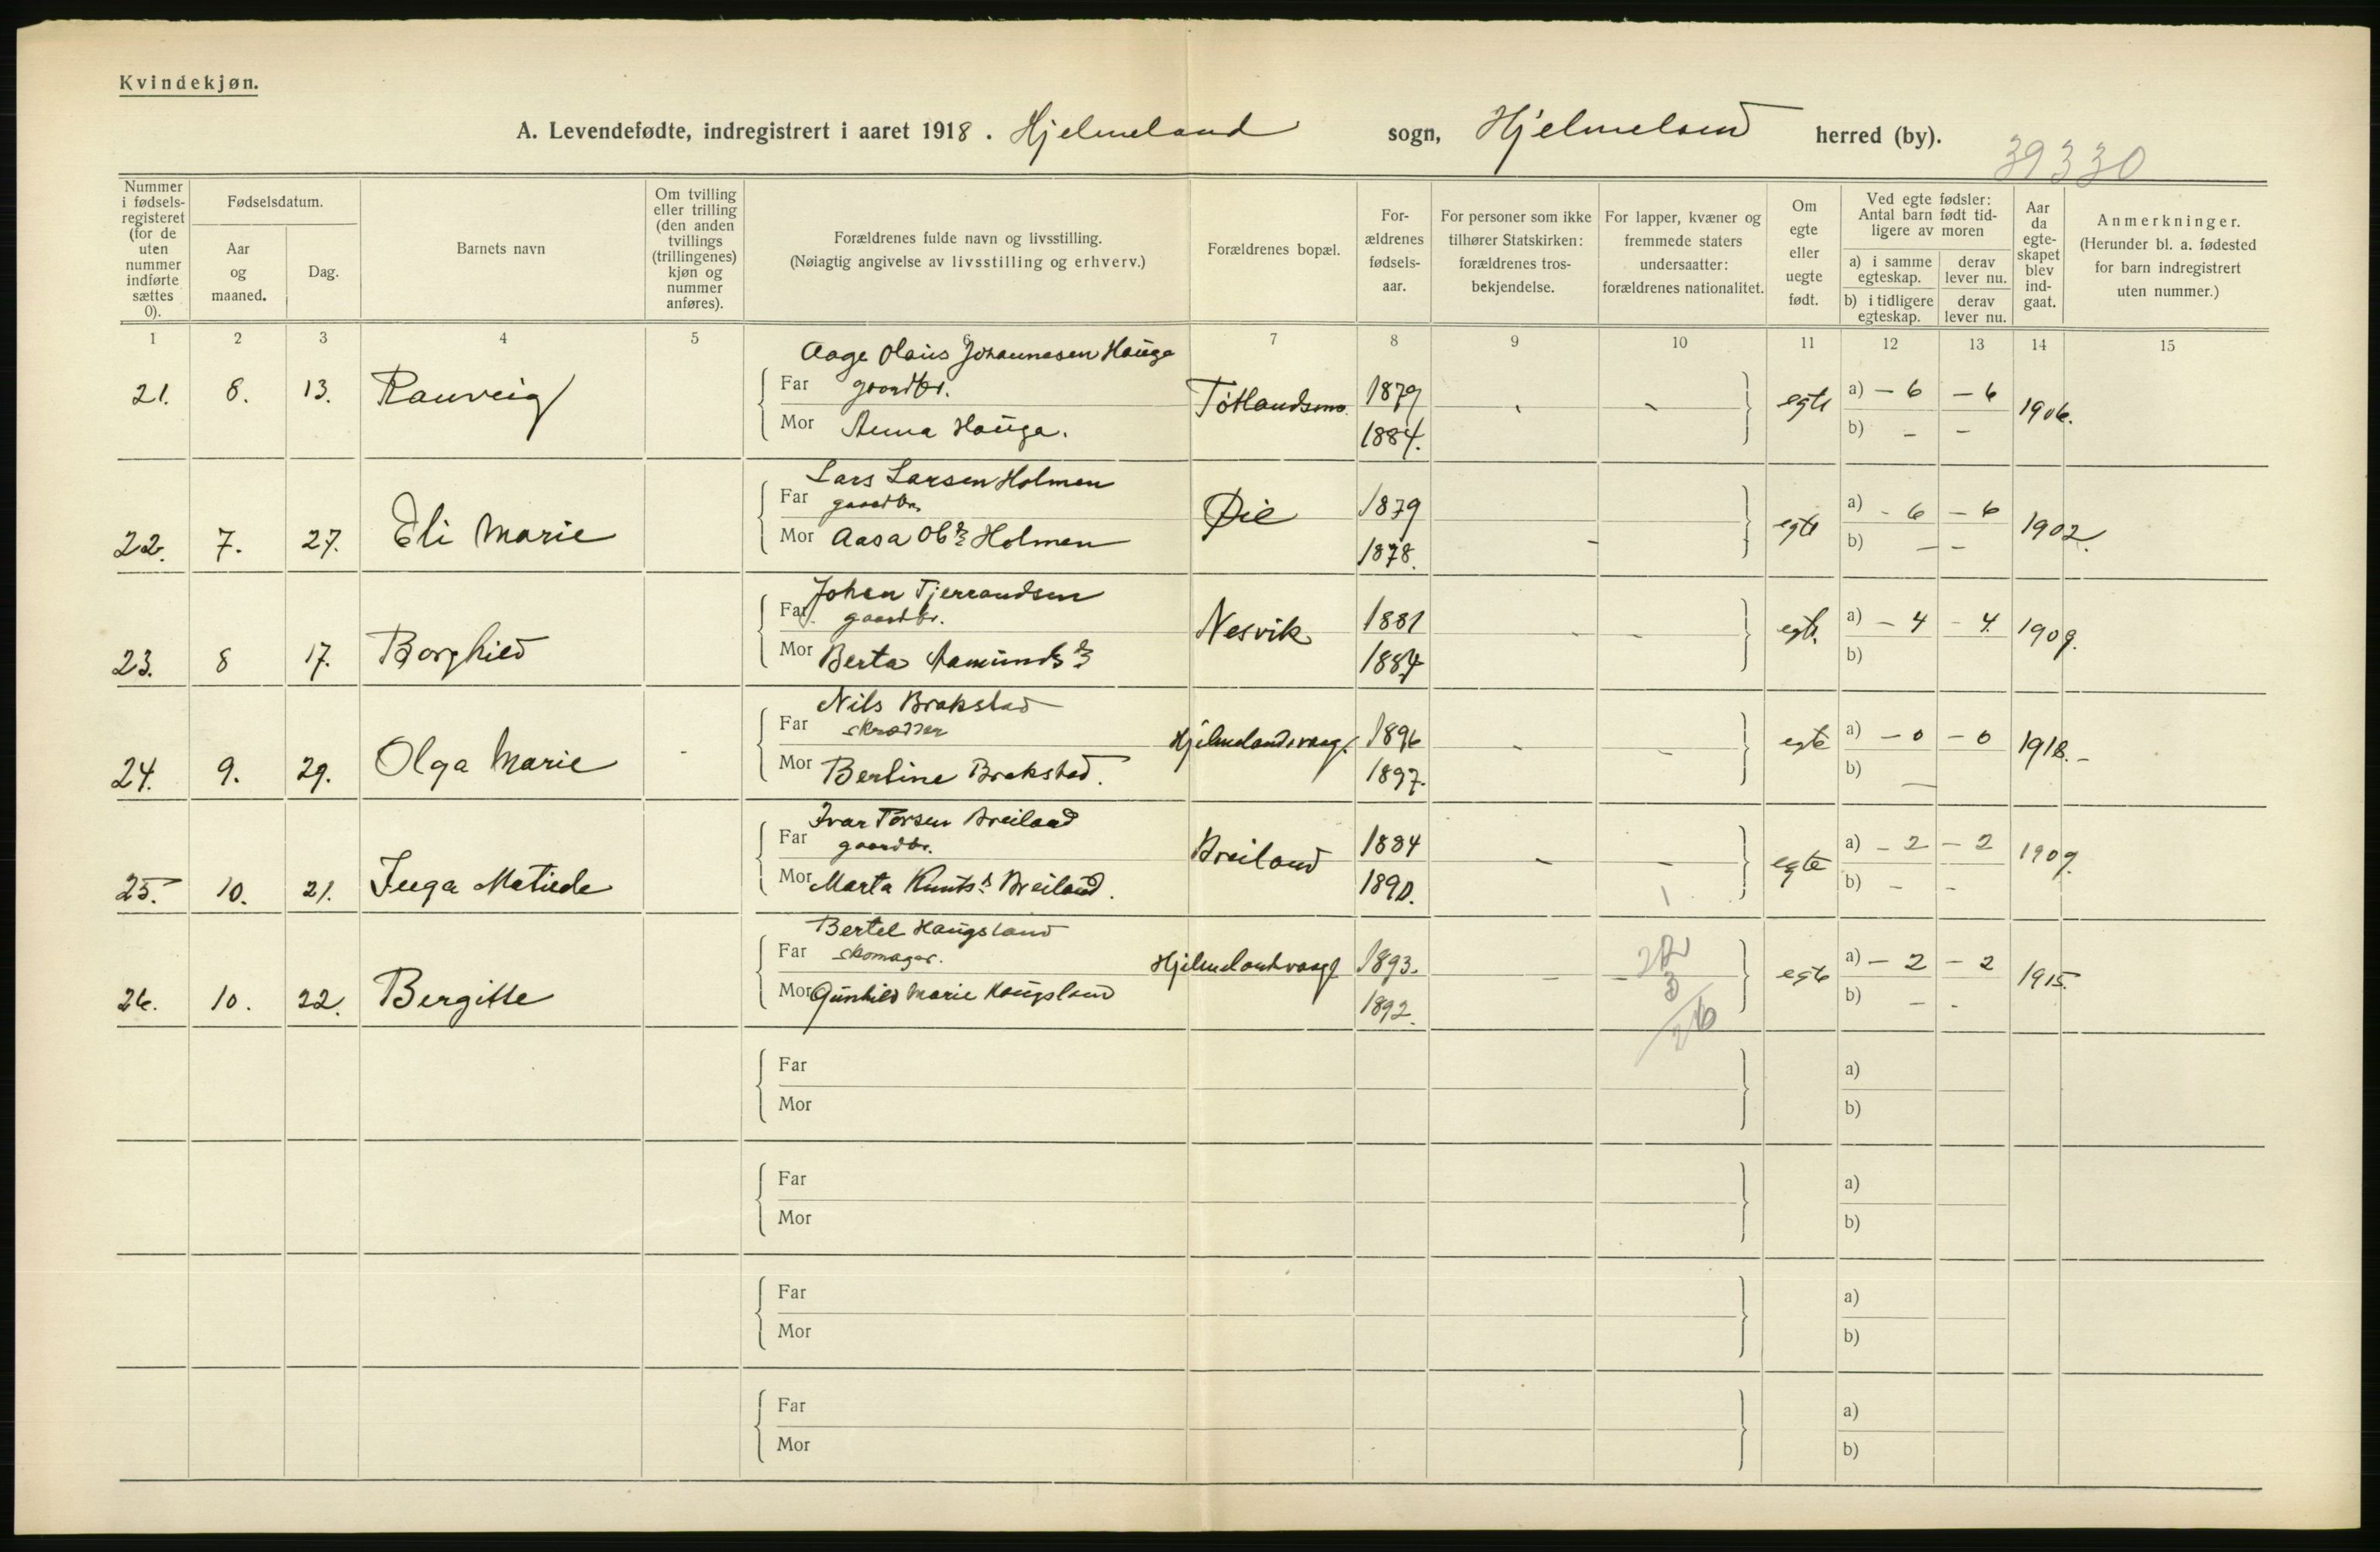 Kvindekjøn.
A. Levendefødte, indregistrert i aaret 1918. Hjelmeland sogn, Hjelmeland herred (by).
39330
Nummer i fødsels-registeret (for de uten nummer indførte sættes 0).
Fødselsdatum.
Aar og maaned.
Dag.
Barnets navn
Om tvilling eller trilling (den anden tvillings (trillingenes) kjøn og nummer anføres).
Forældrenes fulde navn og livsstilling.
(Nøiagtig angivelse av livsstilling og erhverv.)
Forældrenes bopæl.
For-ældrenes fødsels-aar.
For personer som ikke tilhører Statskirken: forældrenes tros-bekjendelse.
For lapper, kvæner og fremmede staters undersaatter: forældrenes nationalitet.
Om egte eller uegte født.
Ved egte fødsler: Antal barn født tid-ligere av moren
a) i samme egteskap.
derav lever nu.
b) i tidligere egteskap.
derav lever nu.
Aar da egte-skapet blev ind-gaat.
Anmerkninger.
(Herunder bl. a. fødested for barn indregistrert uten nummer.)
1 2 3 4 5 6 7 8 9 10 11 12 13 14 15
Aage Olaus Johannesen Hauga
21. 8. 13. Rauveig Far gaardbr. 1879 - - egte a) - 6 - 6 1906.
Mor Anna Hauga. 1884. b) - -
Lars Larsen Holmen
Far gaardbr. Øie 1879 egte a) - 6 - 6 1902.
22. 7. 27. Eli Marie Mor Aasa Holmen 1878. - b) - -
Johan Tjerrandsen
Far gaardbr. Nesvik 1881 - - egte. a) - 4 - 4. 1909.
23. 8 17. Borghild Mor Berta 1884 b)
Nils Brakstad
Far skrædder Hjelmelandsvaag. 1896 - - egte a) - 0 - 0 1918. -
24. 9. 29. Olga Marie - Mor Bertine Brakstad. 1897. b) -
Ivar Torsen Breiland
Far gaardbr. Breiland 1884 - - egte a) - 2 - 2 1909.
25. 10. 21. Inga Matilde Mor Marta Breiland. 1890. 1 b) - -
Bertel Haugsland
Far skomager. Hjelmelandvaag 1893. - - 22 egte a) - 2 - 2 1915.
26. 10. 22. Bergitte Mor Gunhild Marie Haugsland 1892. 3 b) - -
26
Far a)
Mor b)
Far a)
Mor b)
Far a)
Mor b)
Far a)
Mor b)